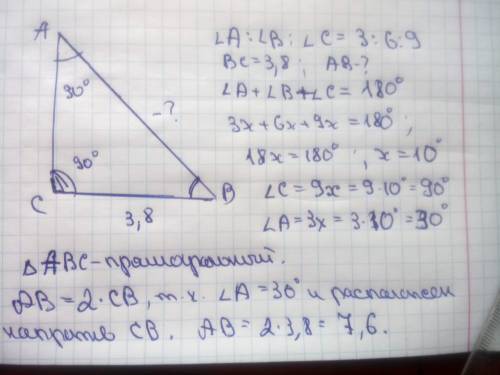 A
∠A : ∠B : ∠C = 3 : 6 : 9
BC = 3,8 ; AB - ?
∠A + ∠B + ∠C = 180°
30°
- ?
3x + 6x + 9x = 180° ;
18x = 180° ; x = 10°
90°
∠C = 9x = 9·10° = 90°
C
B
3,8
∠A = 3x = 3·10° = 30°
△ABC - прямоугольный.
AB = 2·CB, т.к. ∠A = 30° и расположен
напротив CB. AB = 2·3,8 = 7,6.